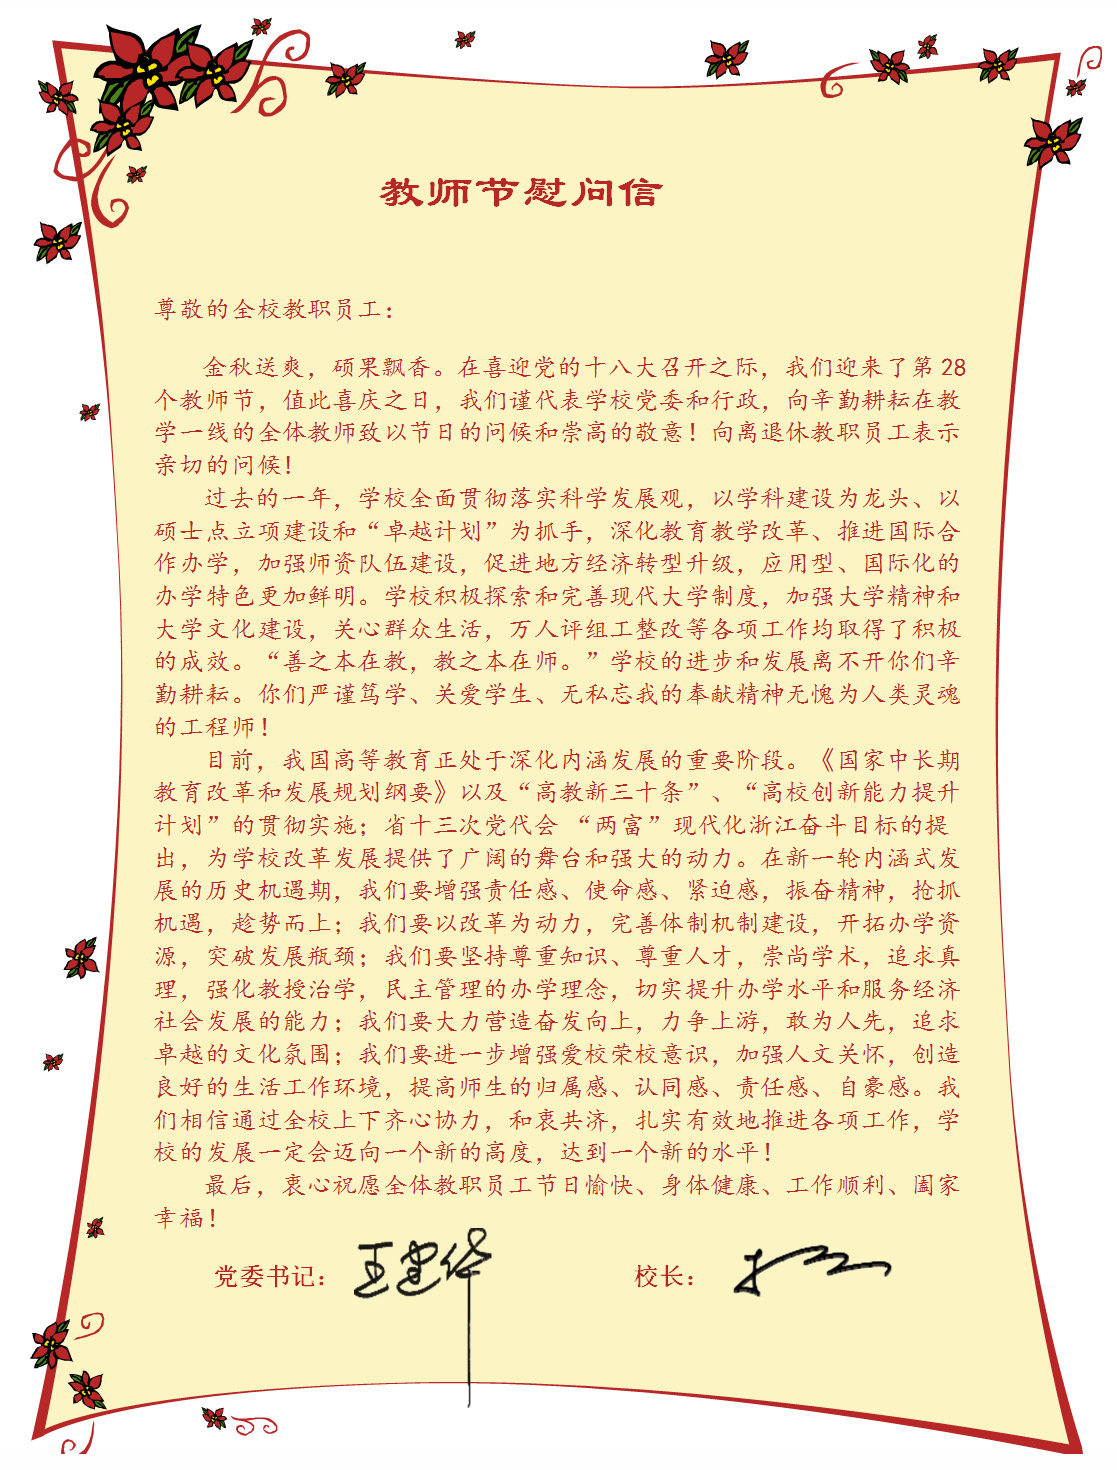 教师节慰问信
尊敬的全校教职员工：
金秋送爽，硕果飘香。在喜迎党的十八大召开之际，我们迎来了第 28
个教师节，值此喜庆之日，我们谨代表学校党委和行政，向辛勤耕耘在教
学一线的全体教师致以节日的问候和崇高的敬意！向离退休教职员工表示
亲切的问候！
过去的一年，学校全面贯彻落实科学发展观，以学科建设为龙头、以
硕士点立项建设和“卓越计划”为抓手，深化教育教学改革、推进国际合
作办学，加强师资队伍建设，促进地方经济转型升级，应用型、国际化的
办学特色更加鲜明。学校积极探索和完善现代大学制度，加强大学精神和
大学文化建设，关心群众生活，万人评组工整改等各项工作均取得了积极
的成效。“善之本在教，教之本在师。”学校的进步和发展离不开你们辛
勤耕耘。你们严谨笃学、关爱学生、无私忘我的奉献精神无愧为人类灵魂
的工程师！
目前，我国高等教育正处于深化内涵发展的重要阶段。《国家中长期
教育改革和发展规划纲要》以及“高教新三十条”、“高校创新能力提升
计划”的贯彻实施；省十三次党代会 “两富”现代化浙江奋斗目标的提
出，为学校改革发展提供了广阔的舞台和强大的动力。在新一轮内涵式发
展的历史机遇期，我们要增强责任感、使命感、紧迫感，振奋精神，抢抓
机遇，趁势而上；我们要以改革为动力，完善体制机制建设，开拓办学资
源，突破发展瓶颈；我们要坚持尊重知识、尊重人才，崇尚学术，追求真
理，强化教授治学，民主管理的办学理念，切实提升办学水平和服务经济
社会发展的能力；我们要大力营造奋发向上，力争上游，敢为人先，追求
卓越的文化氛围；我们要进一步增强爱校荣校意识，加强人文关怀，创造
良好的生活工作环境，提高师生的归属感、认同感、责任感、自豪感。我
们相信通过全校上下齐心协力，和衷共济，扎实有效地推进各项工作，学
校的发展一定会迈向一个新的高度，达到一个新的水平！
最后，衷心祝愿全体教职员工节日愉快、身体健康、工作顺利、阖家
幸福！
党委书记：王建华 校长：